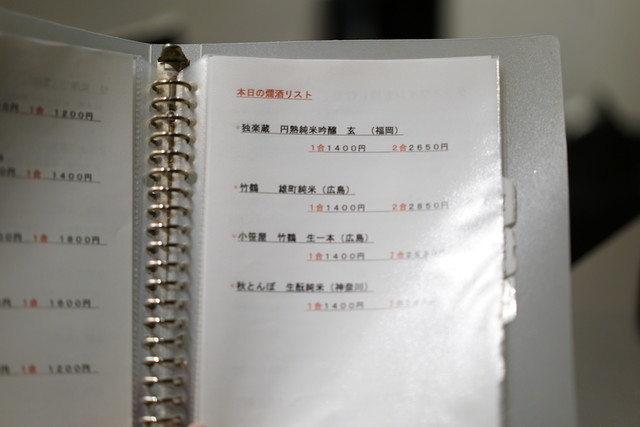 1合 1200円
1合 1400円
1合 1800円
1合 1600円
1合 1200円
本日の燗酒リスト
*独楽蔵 円熟純米吟醸 玄 （福岡）
1合1400円 2合2650円
*竹鶴 雄町純米（広島）
1合1400円 2合2850円
*小笹屋 竹鶴 生一本（広島）
1合1400円 2合
*秋とんぼ 生酛純米（神奈川）
1合1400円 2合